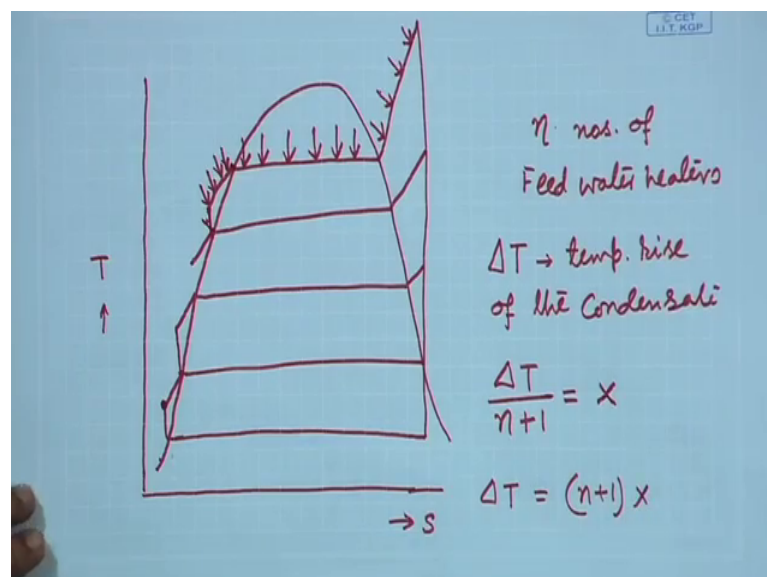 © CET
I.I.T. KGP
n. nos. of
Feed water heaters
ΔT → temp. rise
of the Condensate
ΔT
n+1
= x
ΔT = (n+1) x
T
↑
→ S